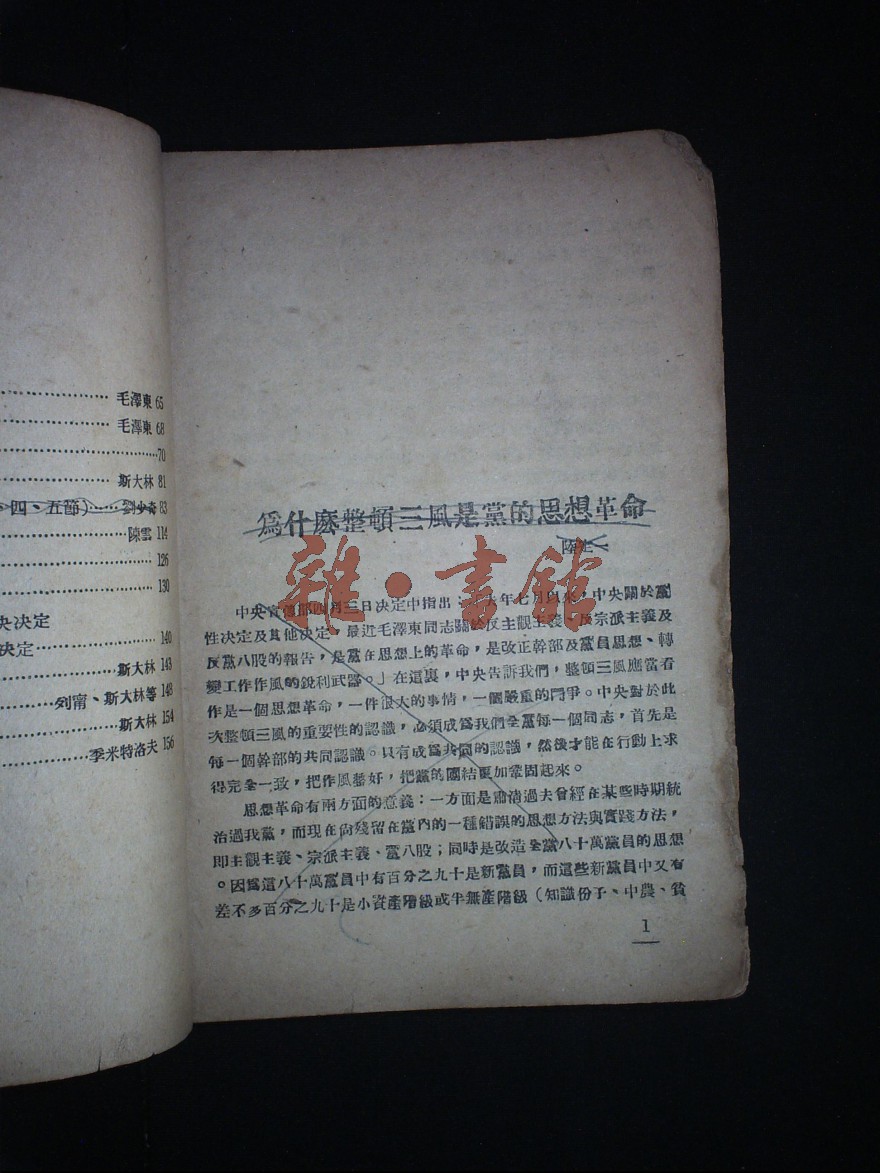 毛澤東 65
毛澤東 68
70
斯大林 81
四、五節) 劉少奇 83
陳雲 114
126
130
央決定
決定 140
斯大林 143
列甯、斯大林等 148
斯大林 154
季米特洛夫 156
爲什麽整頓三風是黨的思想革命
陸定一
雜·書館
中央宣傳部四月三日决定中指出:年七月以來,中央關於黨
性决定及其他决定,最近毛澤東同志關於反主觀主義、反宗派主義及
反黨八股的報告,是黨在思想上的革命,是改正幹部及黨員思想、轉
變工作作風的銳利武器。」在這裏,中央告訴我們,整頓三風應當看
作是一個思想革命,一件很大的事情,一個嚴重的鬥爭。中央對於此
次整頓三風的重要性的認識,必須成爲我們全黨每一個同志,首先是
每一個幹部的共同認識。只有成爲共同的認識,然後才能在行動上求
得完全一致,把作風整好,把黨的團結更加鞏固起來。
思想革命有兩方面的意義:一方面是肅清過去曾經在某些時期統
治過我黨,而現在尙殘留在黨內的一種錯誤的思想方法與實踐方法,
即主觀主義、宗派主義、黨八股;同時是改造全黨八十萬黨員的思想
。因爲這八十萬黨員中有百分之九十是新黨員,而這些新黨員中又有
差不多百分之九十是小資產階級或半無產階級(知識份子、中農、貧
1